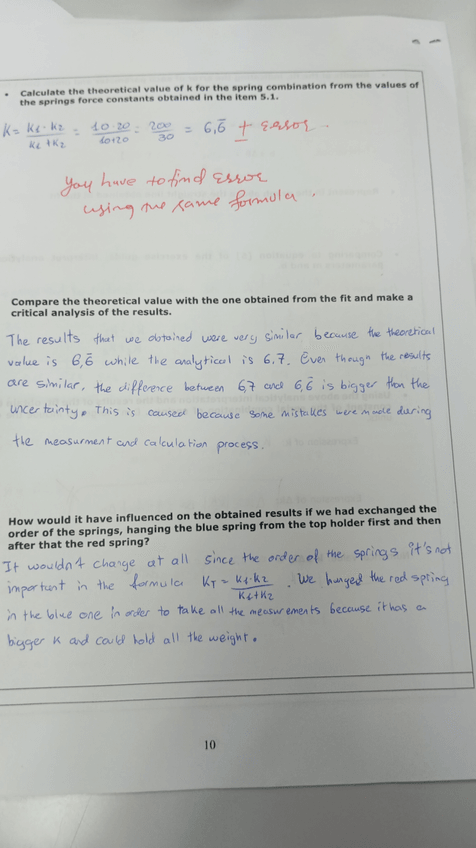 • Calculate the theoretical value of k for the spring combination from the values of
the springs force constants obtained in the item 5.1.
K = K1·K2 / K1+K2 = 10·20 / 10+20 = 200 / 30 = 6,6̄ + error.
You have to find error
using the same formula.
Compare the theoretical value with the one obtained from the fit and make a
critical analysis of the results.
The results that we obtained were very similar because the theoretical
value is 6,6̄ while the analytical is 6.7. Even though the results
are similar, the difference between 6,7 and 6,6̄ is bigger than the
uncertainty. This is caused because some mistakes were made during
the measurment and calculation process.
How would it have influenced on the obtained results if we had exchanged the
order of the springs, hanging the blue spring from the top holder first and then
after that the red spring?
It wouldn't change at all since the order of the springs it's not
important in the formula KT = K1·K2 / K1+K2 . We hunged the red spring
in the blue one in order to take all the measurements because it has a
bigger K and could hold all the weight.
10